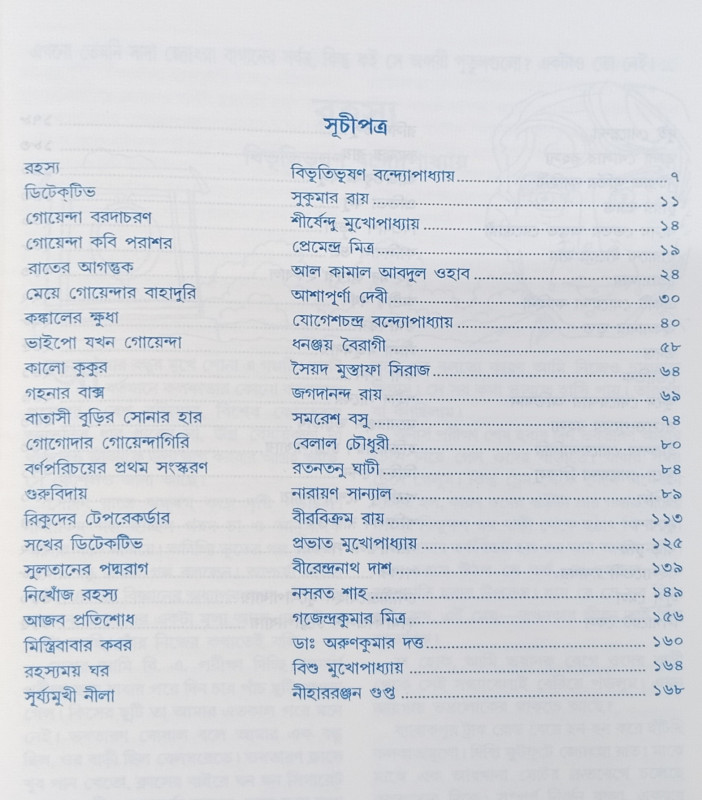 সূচীপত্র
রহস্য বিভূতিভূষণ বন্দ্যোপাধ্যায় ৭
ডিটেক্‌টিভ সুকুমার রায় ১১
গোয়েন্দা বরদাচরণ শীর্ষেন্দু মুখোপাধ্যায় ১৪
গোয়েন্দা কবি পরাশর প্রেমেন্দ্র মিত্র ১৯
রাতের আগন্তুক আল কামাল আবদুল ওহাব ২৪
মেয়ে গোয়েন্দার বাহাদুরি আশাপূর্ণা দেবী ৩০
কঙ্কালের ক্ষুধা যোগেশচন্দ্র বন্দ্যোপাধ্যায় ৪০
ভাইপো যখন গোয়েন্দা ধনঞ্জয় বৈরাগী ৫৮
কালো কুকুর সৈয়দ মুস্তাফা সিরাজ ৬৪
গহনার বাক্স জগদানন্দ রায় ৬৯
বাতাসী বুড়ির সোনার হার সমরেশ বসু ৭৪
গোগোদার গোয়েন্দাগিরি বেলাল চৌধুরী ৮০
বর্ণপরিচয়ের প্রথম সংস্করণ রতনতনু ঘাটী ৮৪
গুরুবিদায় নারায়ণ সান্যাল ৮৯
রিকুদের টেপরেকর্ডার বীরবিক্রম রায় ১১৩
সখের ডিটেকটিভ প্রভাত মুখোপাধ্যায় ১২৫
সুলতানের পদ্মরাগ বীরেন্দ্রনাথ দাশ ১৩৯
নিখোঁজ রহস্য নসরত শাহ ১৪৯
আজব প্রতিশোধ গজেন্দ্রকুমার মিত্র ১৫৬
মিস্ত্রিবাবার কবর ডাঃ অরুণকুমার দত্ত ১৬০
রহস্যময় ঘর বিশু মুখোপাধ্যায় ১৬৪
সূর্য্যমুখী নীলা নীহাররঞ্জন গুপ্ত ১৬৮